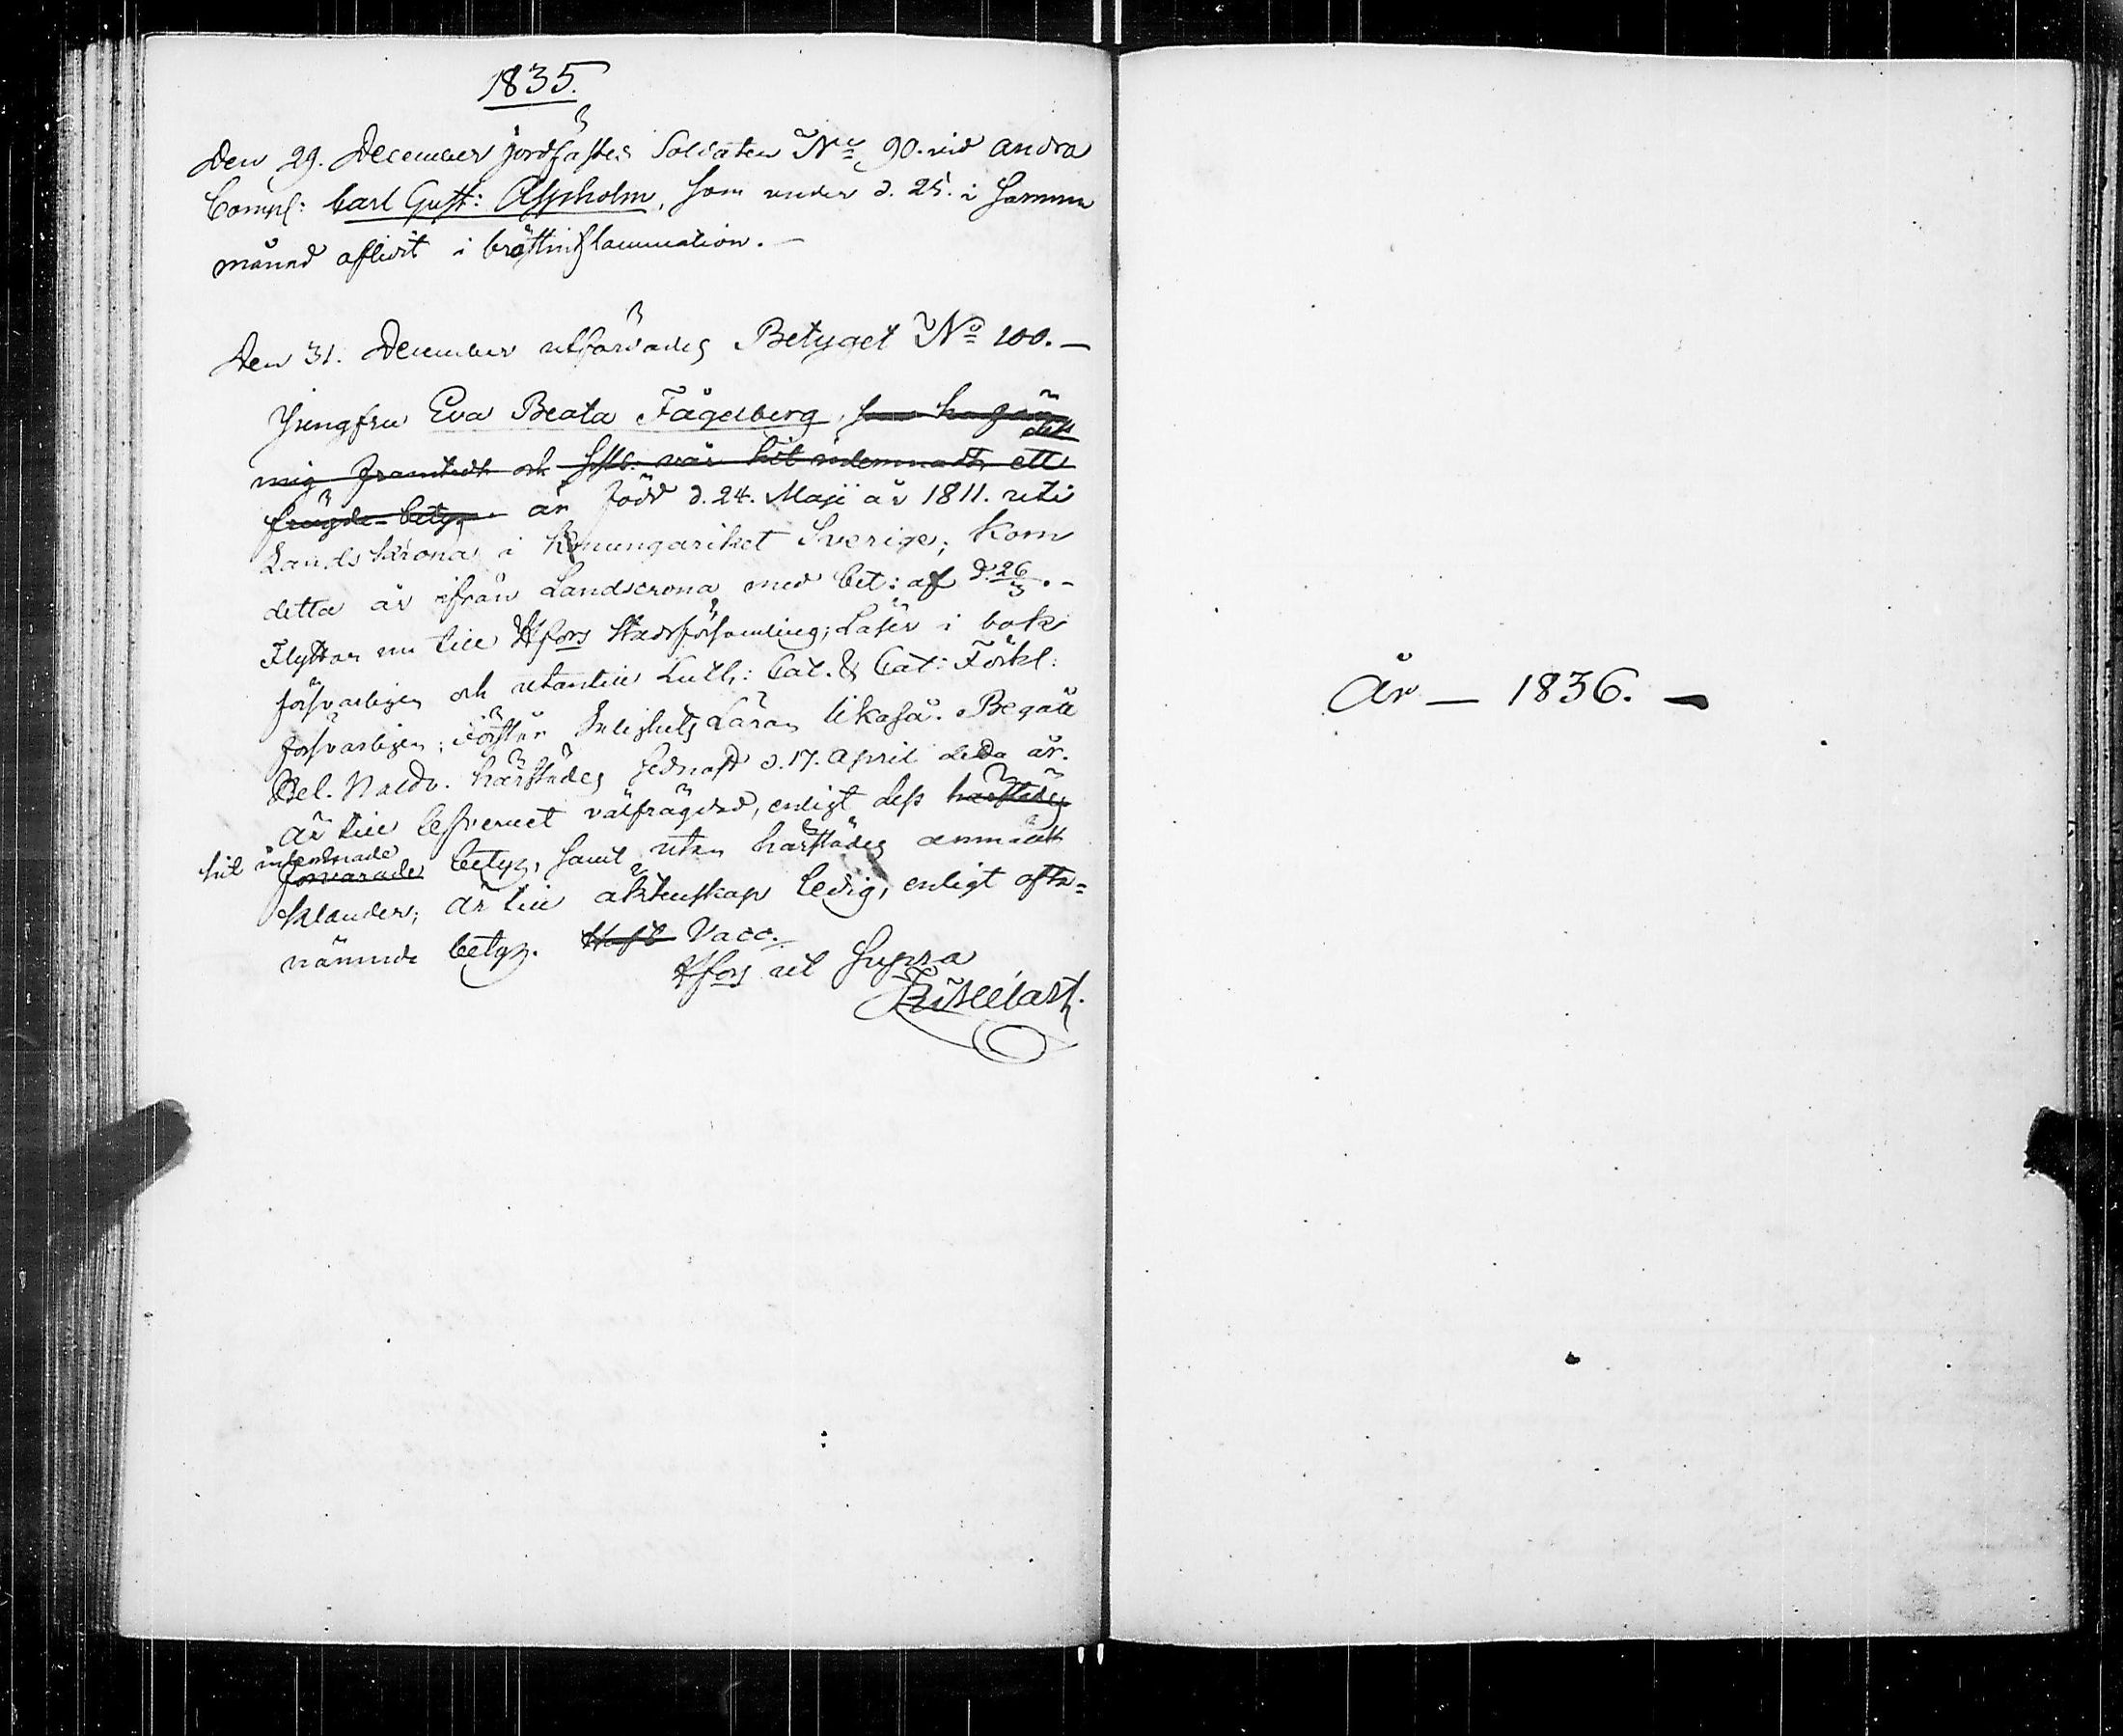 1835.
Den 29. December jordfästes Soldaten No 90. vid andra
Comp: Carl Gust: Aspholm, som under d. 25. i samma
månad aflidit i bröstinflammation. —
Den 31. December utfärdades Betyget No 100. —
Jungfru Eva Beata Fågelberg, som
mig framtedt och sitt hit inlemnadt ett
frägde-betyg. är född d. 24. Maji år 1811. uti
Landskrona i Konungariket Sverige; kom
detta år ifrån Landscrona med bet: af d. 26/3. -
Flyttar nu till Hfors Stadsförsamling; Läser i bok
försvarligen och utantill Luth: Cat. & Cat: Förkl:
försvarligen; förstår Salighets Läran likaså. Begått
Hel. Nattv. härstädes sednast d. 17. April detta år.
Är till lefvernet välfrägdad, enligt dess härstädes
hit inlemnade
förvarade betyg, samt utan härstädes anmäldt
klander; är till äktenskap ledig, enligt ofta-
nämnde betyg. Haft Vacc.
Hfors ut Supra
År — 1836. —